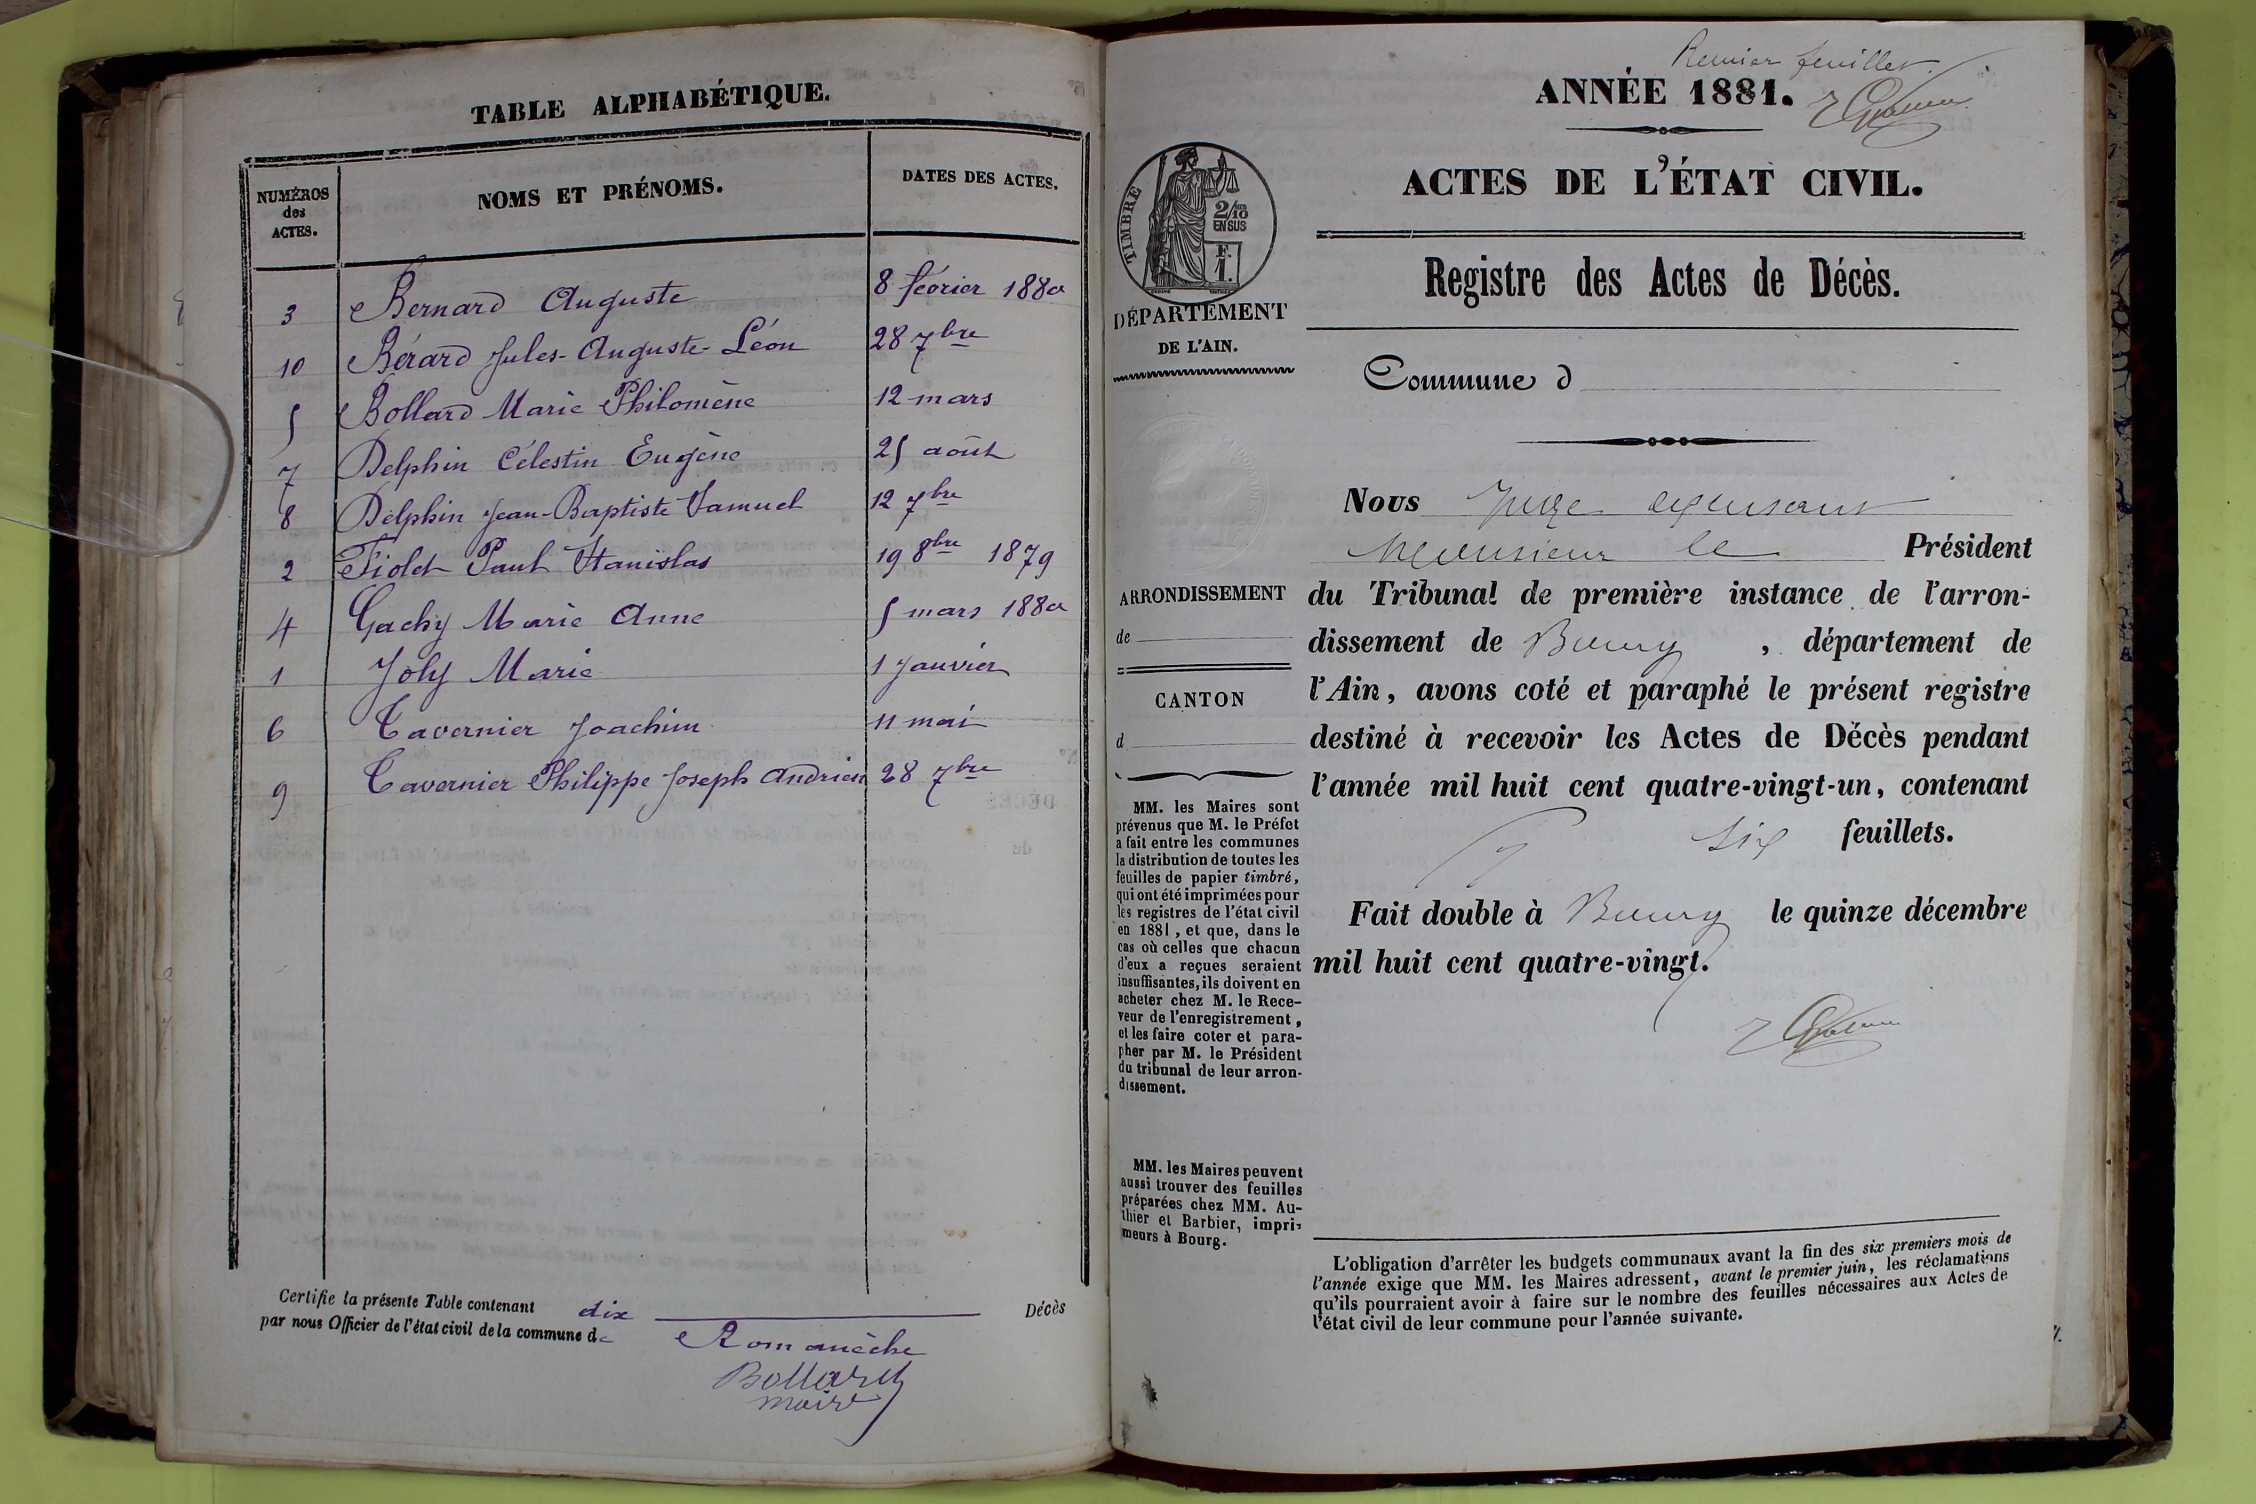 TABLE ALPHABÉTIQUE.
NUMÉROS des ACTES.
NOMS ET PRÉNOMS.
DATES DES ACTES.
3 Bernard Auguste 8 février 1880
10 Bérard Jules-Auguste-Léon 28 7bre
5 Bollard Marie Philomène 12 mars
7 Delphin Célestin Eugène 25 août
8 Delphin Jean-Baptiste Samuel 12 7bre
2 Fiolet Paul Stanislas 19 8bre 1879
4 Gachy Marie Anne 5 mars 1880
1 Joly Marie 1 Janvier
6 Tavernier Joachim 11 mai
9 Tavernier Philippe Joseph Andrien 28 7bre
Certifie la présente Table contenant dix Décès
par nous Officier de l'état civil de la commune de Romanèche
Bollard
maire
Premier feuillet.
ANNÉE 1881.
ACTES DE L'ÉTAT CIVIL.
TIMBRE
2/10 EN SUS
F. 1.
DÉPARTEMENT
DE L'AIN.
Registre des Actes de Décès.
Commune d
ARRONDISSEMENT
de
CANTON
d
MM. les Maires sont
prévenus que M. le Préfet
a fait entre les communes
la distribution de toutes les
feuilles de papier timbré,
qui ont été imprimées pour
les registres de l'état civil
en 1881, et que, dans le
cas où celles que chacun
d'eux a reçues seraient
insuffisantes, ils doivent en
acheter chez M. le Rece-
veur de l'enregistrement,
et les faire coter et para-
pher par M. le Président
du tribunal de leur arron-
dissement.
MM. les Maires peuvent
aussi trouver des feuilles
préparées chez MM. Au-
thier et Barbier, impri-
meurs à Bourg.
Nous Juge
Monsieur le Président
du Tribunal de première instance de l'arron-
dissement de Bourg, département de
l'Ain, avons coté et paraphé le présent registre
destiné à recevoir les Actes de Décès pendant
l'année mil huit cent quatre-vingt-un, contenant
six feuillets.
Fait double à Bourg le quinze décembre
mil huit cent quatre-vingt.
L'obligation d'arrêter les budgets communaux avant la fin des six premiers mois de
l'année exige que MM. les Maires adressent, avant le premier juin, les réclamations
qu'ils pourraient avoir à faire sur le nombre des feuilles nécessaires aux Actes de
l'état civil de leur commune pour l'année suivante.